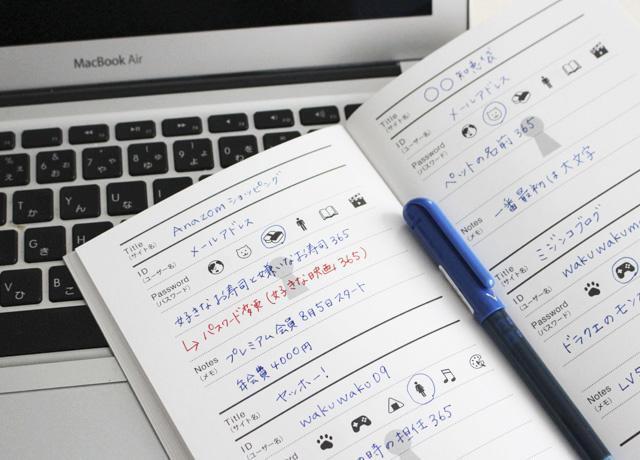 MacBook Air
Title
(サイト名)
Anazomショッピング
ID
(ユーザー名)
メールアドレス
Password
(パスワード)
好きなお寿司と嫌いなお寿司365
↳パスワード変更(好きな映画365)
Notes
(メモ)
プレミアム会員 8月5日スタート
年会費4000円
Title
(サイト名)
ヤッホー!
ID
(ユーザー名)
wakuwako09
の時の担任365
Title
(サイト名)
○○知恵袋
ID
(ユーザー名)
メールアドレス
Password
(パスワード)
ペットの名前365
Notes
(メモ)
一番最初は大文字
Title
(サイト名)
ミジンコブログ
ID
(ユーザー名)
wakuwakum
Password
(パスワード)
ドラクエのモン
Notes
(メモ)
LV5